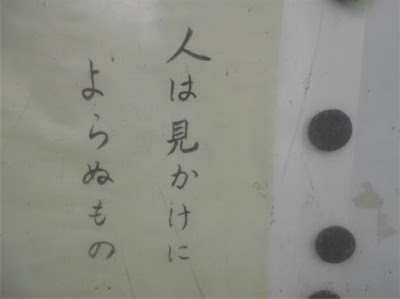 人は見かけに
よらぬもの